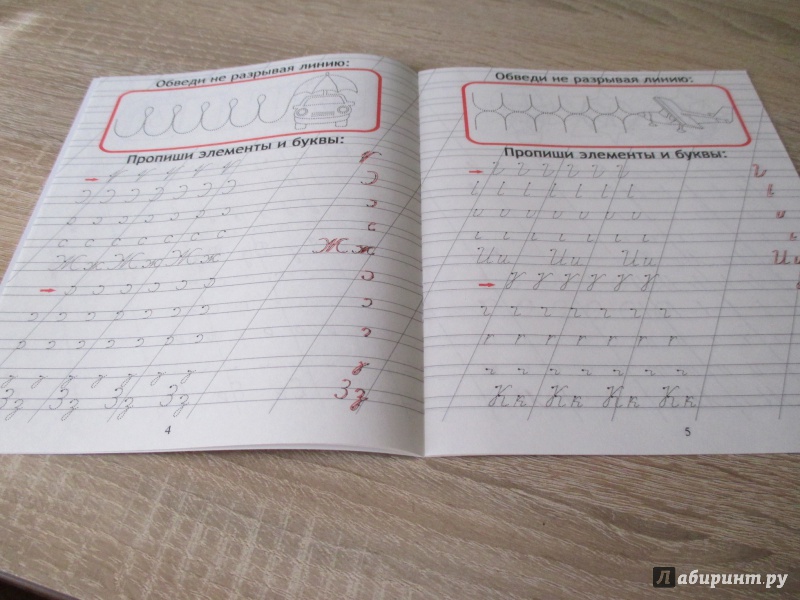 Обведи не разрывая линию:
Пропиши элементы и буквы:
Жж Жж Жж Жж
Зз Зз Зз Зз Зз
4
Обведи не разрывая линию:
Пропиши элементы и буквы:
Ии Ии Ии Ии
Кк Кк Кк Кк
5
Лабиринт.ру